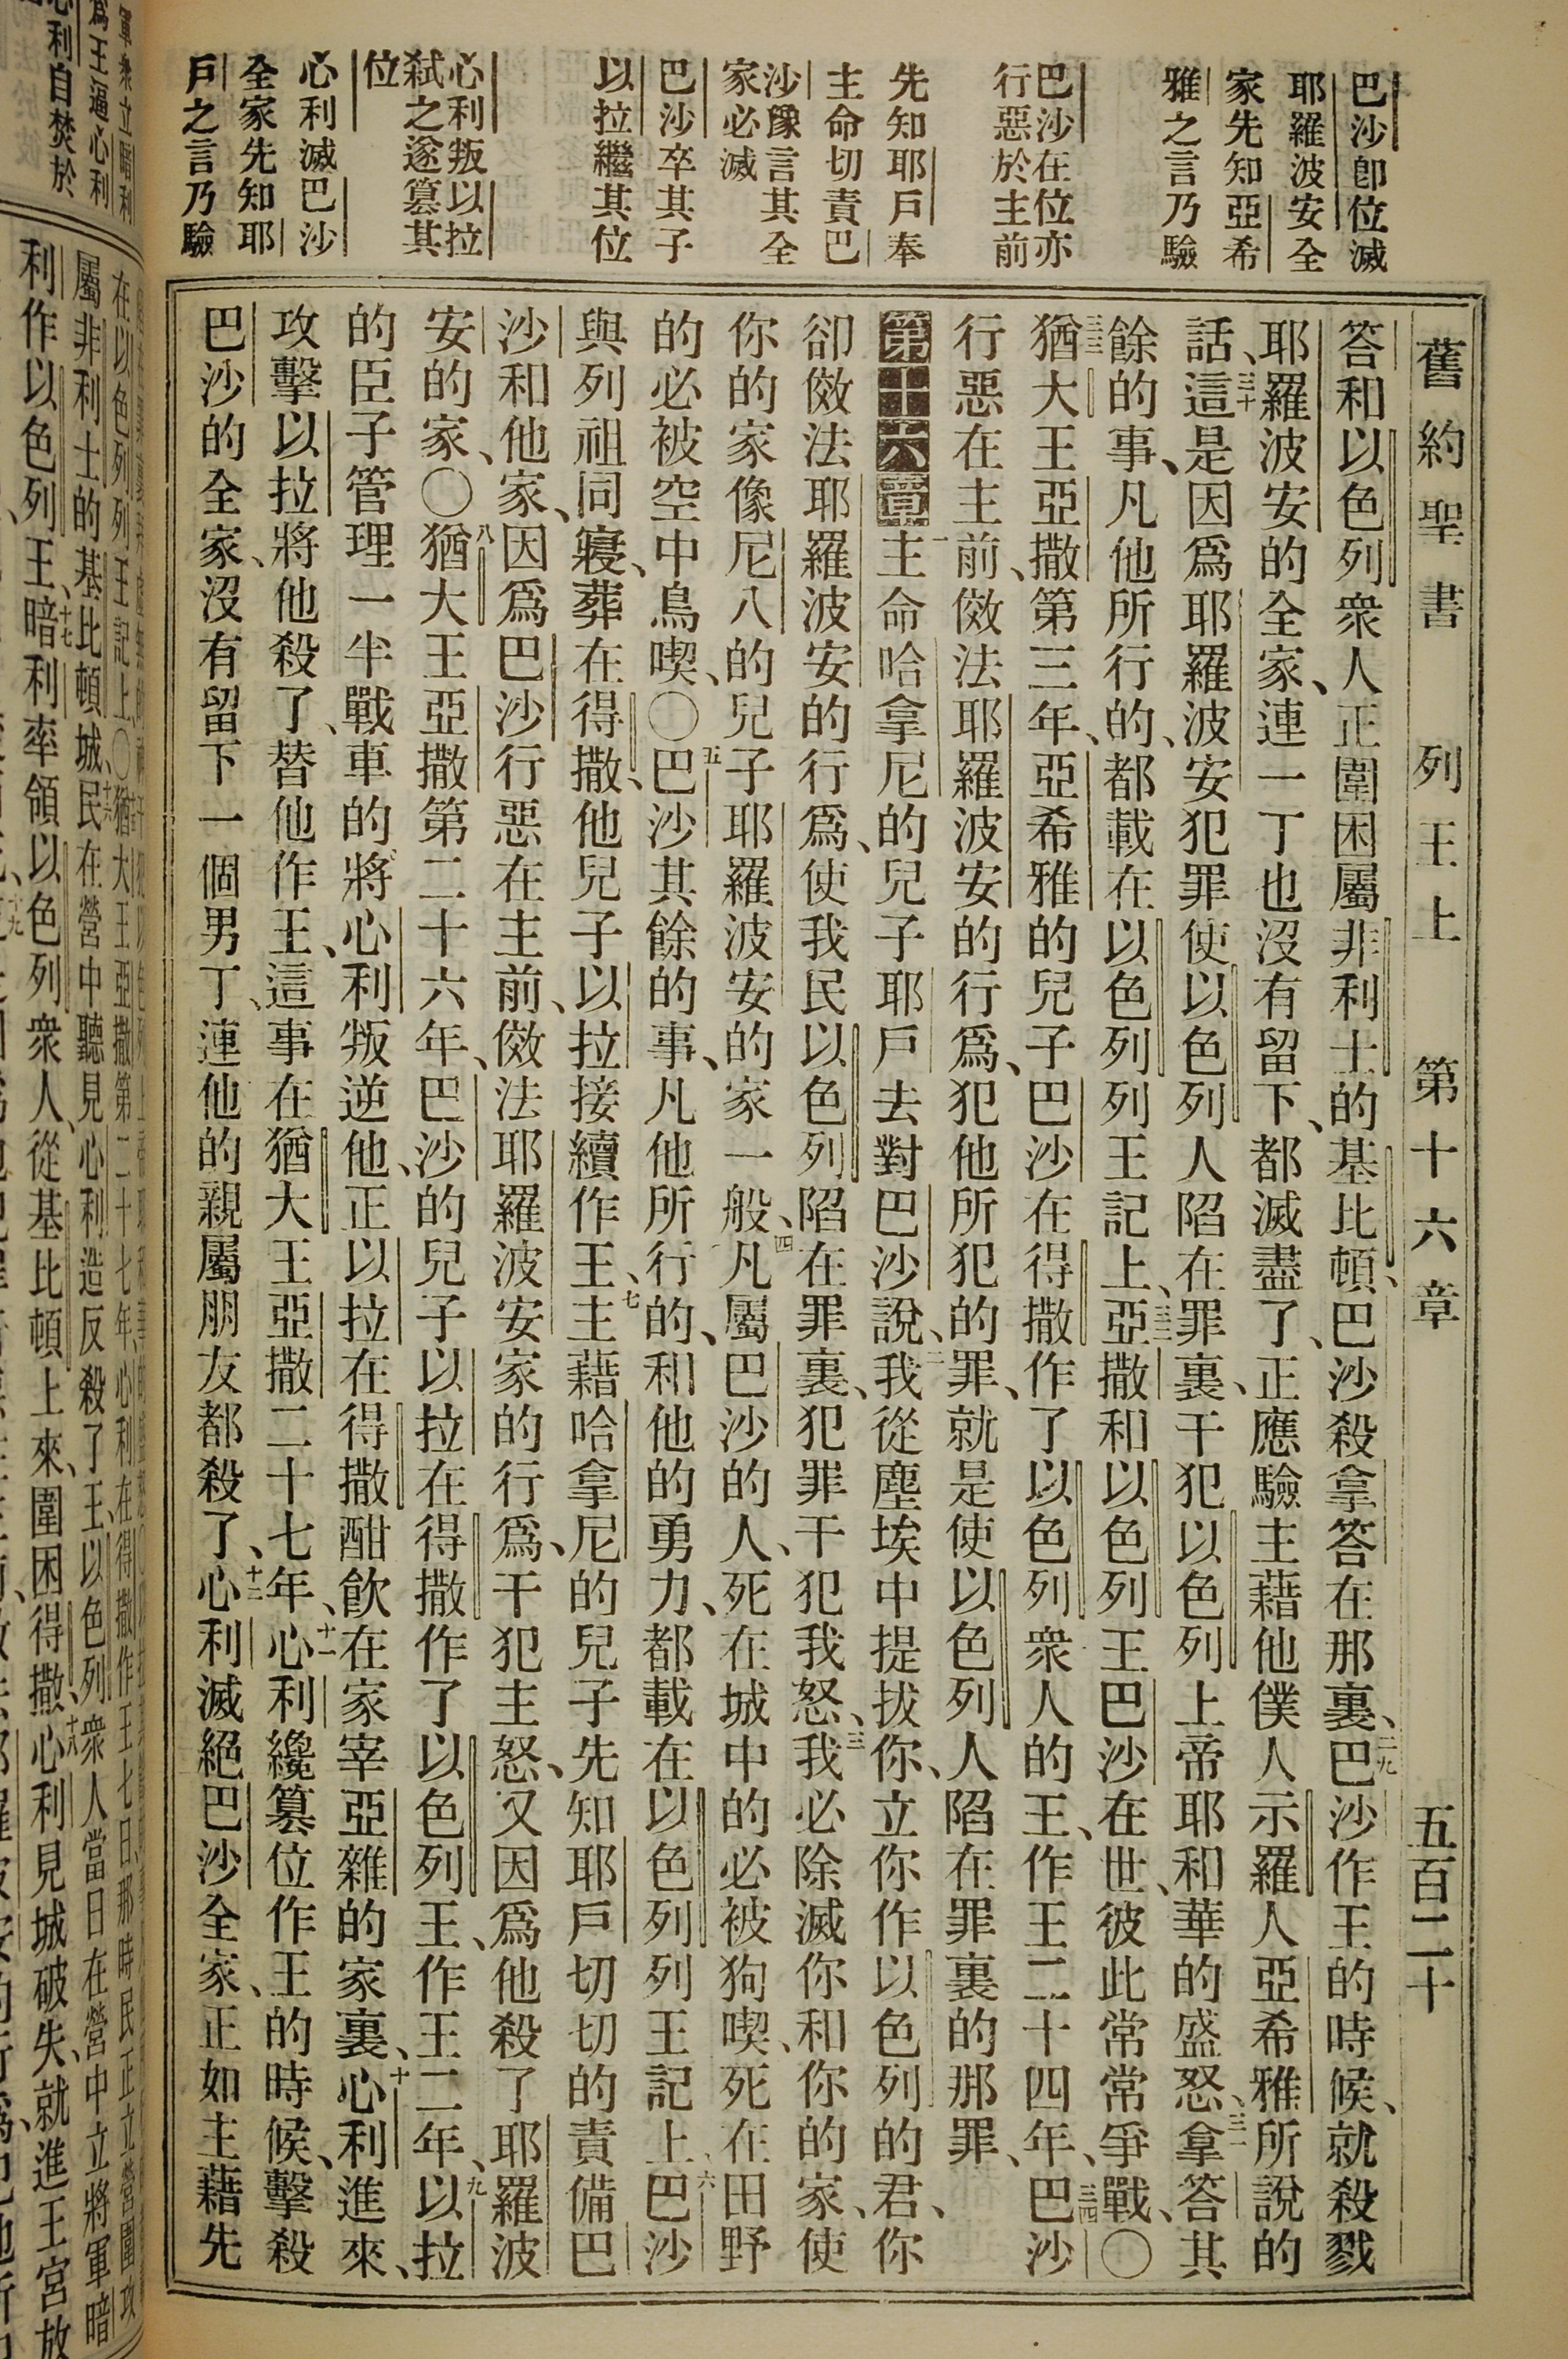 舊約聖書　列王上　第十六章　五百二十
巴沙卽位滅
耶羅波安全
家先知亞希
雅之言乃驗
巴沙在位亦
行惡於主前
先知耶戶奉
主命切責巴
沙豫言其全
家必滅
巴沙卒其子
以拉繼其位
心利叛以拉
弒之遂篡其
位
心利滅巴沙
全家先知耶
戶之言乃驗
答和以色列衆人正圍困屬非利士的基比頓、巴沙殺拿答在那裏、二九巴沙作王的時候、就殺戮
耶羅波安的全家、連一丁也沒有留下、都滅盡了、正應驗主藉他僕人示羅人亞希雅所說的
話、三十這是因爲耶羅波安犯罪使以色列人陷在罪裏、干犯以色列上帝耶和華的盛怒、三一拿答其
餘的事、凡他所行的、都載在以色列列王記上、三二亞撒和以色列王巴沙在世、彼此常常爭戰、〇
三三猶大王亞撒第三年、亞希雅的兒子巴沙在得撒作了以色列衆人的王、作王二十四年、三四巴沙
行惡在主前、傚法耶羅波安的行爲、犯他所犯的罪、就是使以色列人陷在罪裏的那罪、
第十六章一主命哈拿尼的兒子耶戶去對巴沙說、二我從塵埃中提拔你、立你作以色列的君、你
卻傚法耶羅波安的行爲、使我民以色列陷在罪裏、犯罪干犯我怒、三我必除滅你和你的家、使
你的家像尼八的兒子耶羅波安的家一般、四凡屬巴沙的人、死在城中的必被狗喫、死在田野
的必被空中鳥喫、〇五巴沙其餘的事、凡他所行的、和他的勇力、都載在以色列列王記上、六巴沙
與列祖同寢、葬在得撒、他兒子以拉接續作王、七主藉哈拿尼的兒子先知耶戶切切的責備巴
沙和他家、因爲巴沙行惡在主前、傚法耶羅波安家的行爲、干犯主怒、又因爲他殺了耶羅波
安的家、〇八猶大王亞撒第二十六年、巴沙的兒子以拉在得撒作了以色列王、作王二年、九以拉
的臣子管理一半戰車的將心利叛逆他、正以拉在得撒酣飮在家宰亞雜的家裏、十心利進來、
攻擊以拉將他殺了、替他作王、這事在猶大王亞撒二十七年、十一心利纔篡位作王的時候、擊殺
巴沙的全家、沒有留下一個男丁、連他的親屬朋友都殺了、十二心利滅絕巴沙全家、正如主藉先
軍衆立暗利
爲王逼心利
心利自焚於
屬非利士的基比頓城、十六民在營中聽見心利造反殺了王、以色列衆人當日在營中立將軍暗
利作以色列王、十七暗利率領以色列衆人、從基比頓上來、圍困得撒、十八心利見城破失、就進王宮放